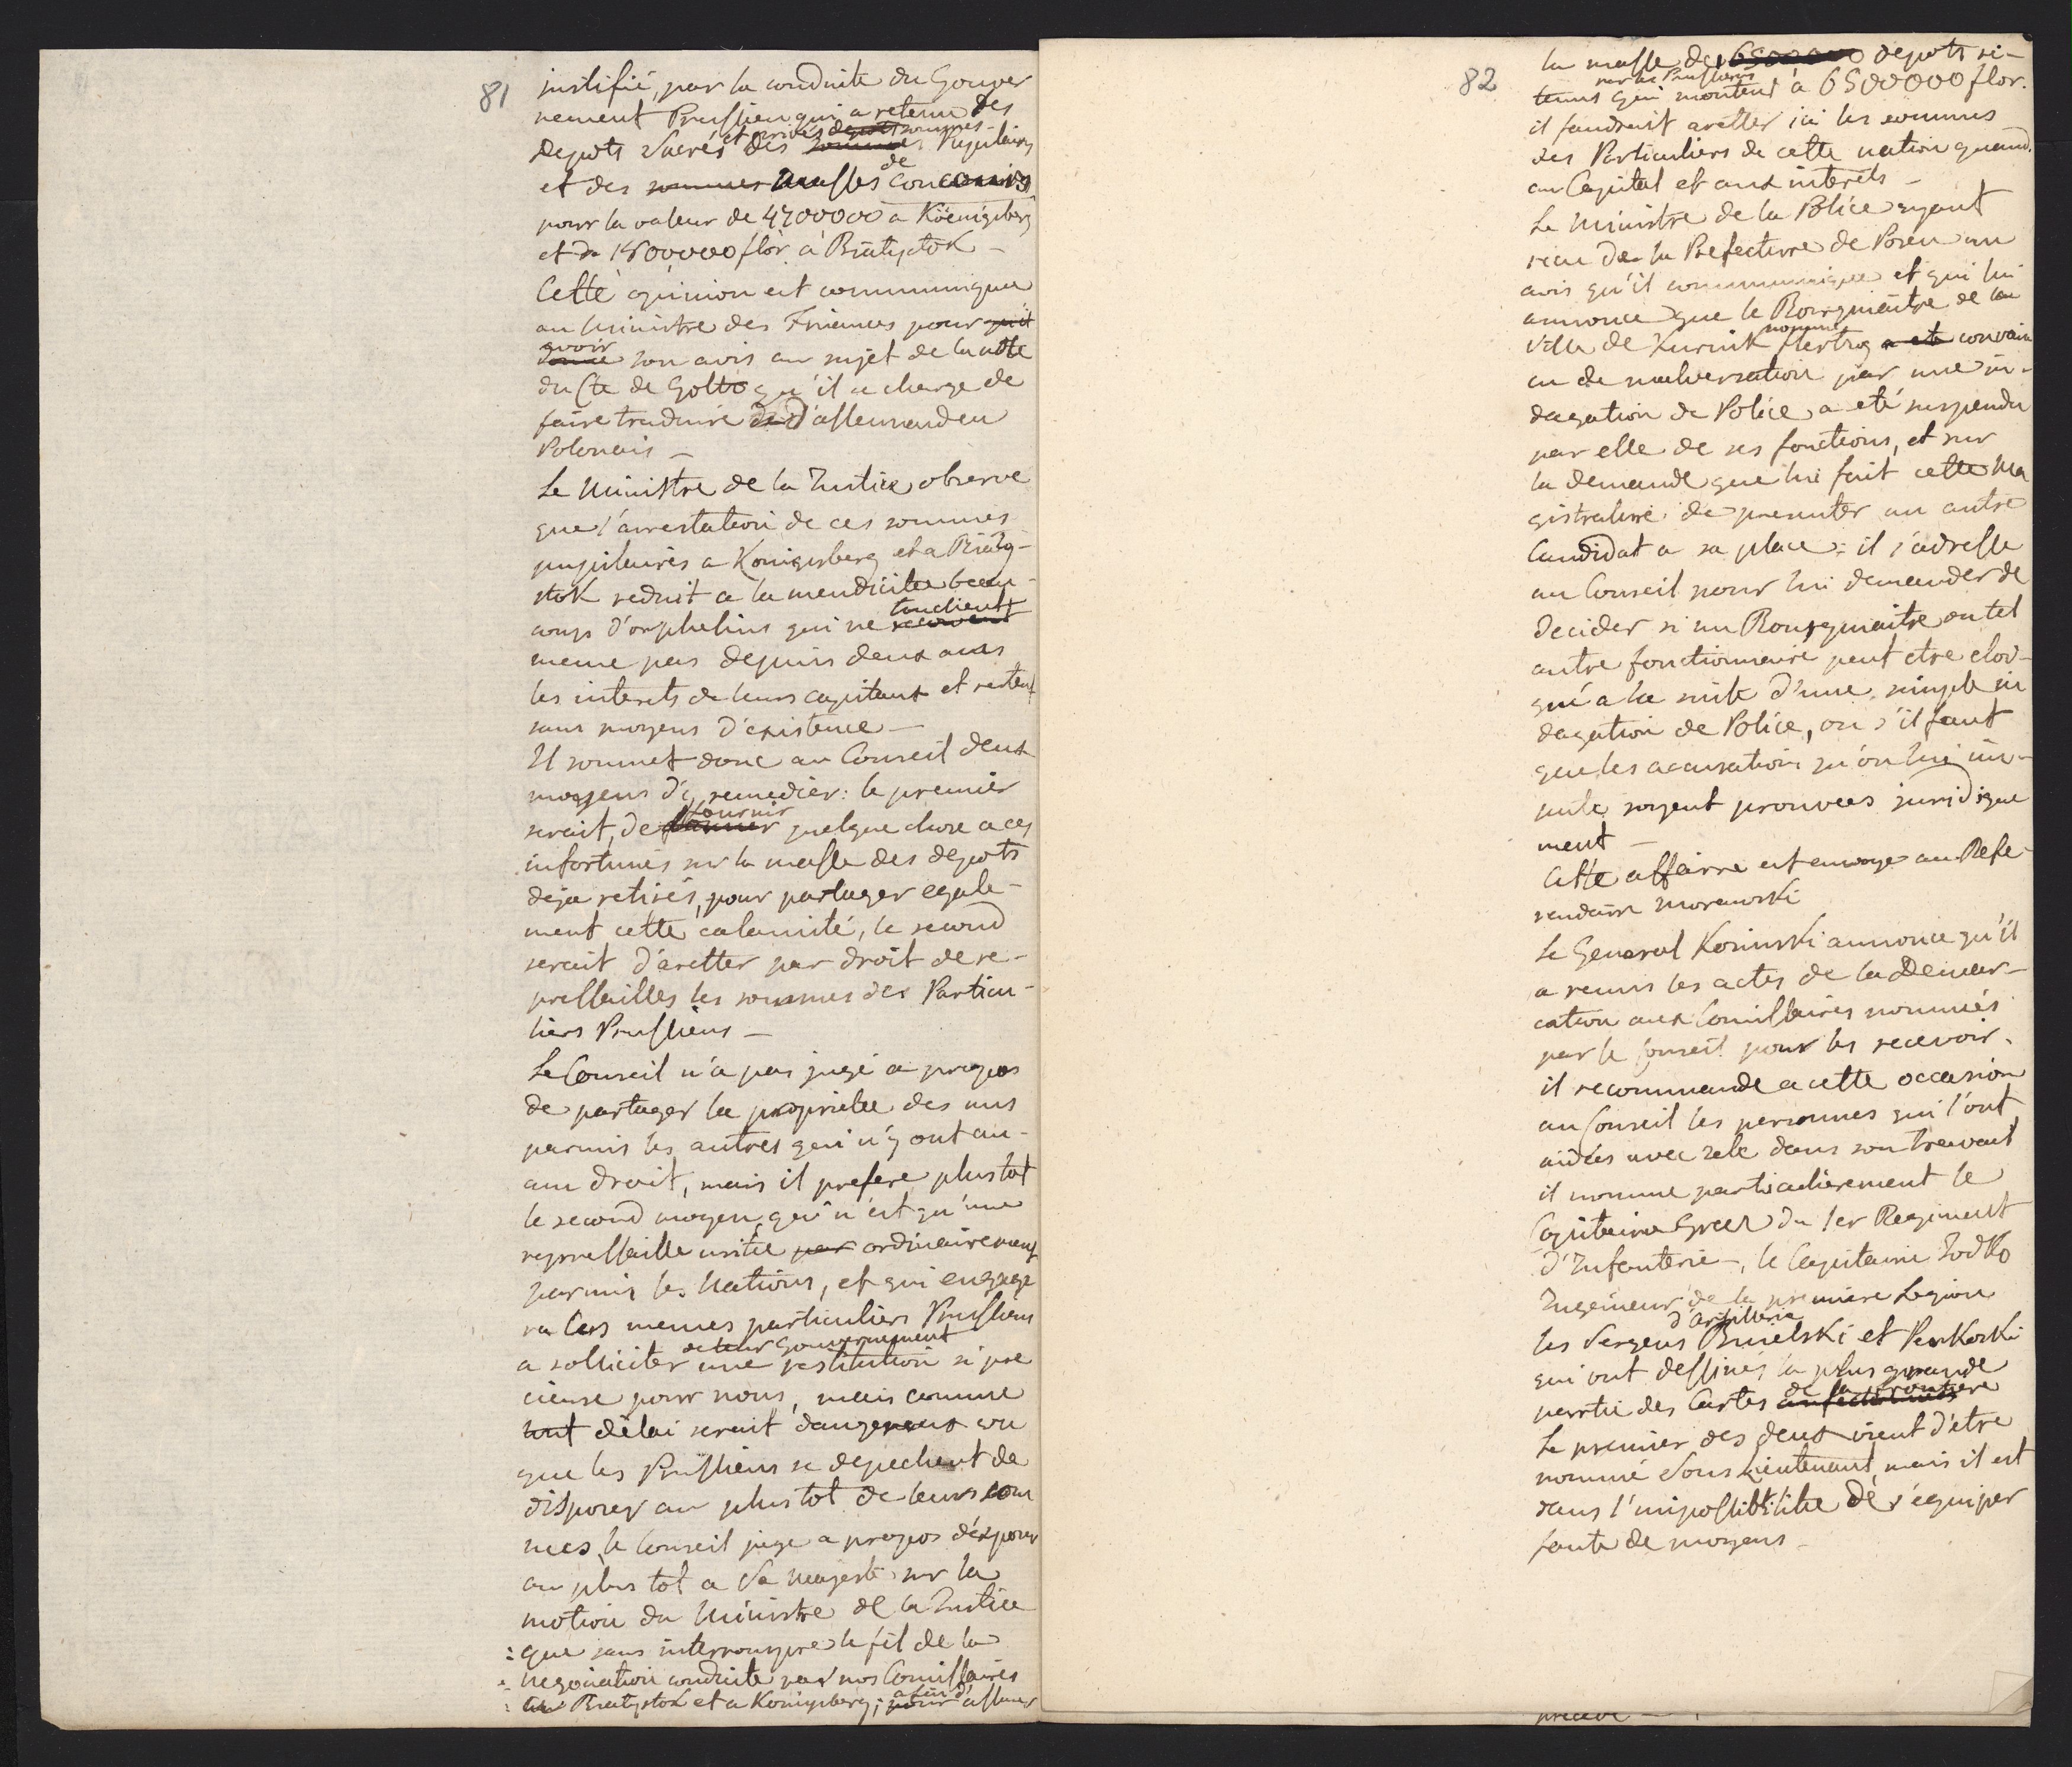 81
justifié, par la conduite du Gouver
nement Prussien qui a retenu des
et privés depots sommes
Depots Sacrés des sommes Pupilaires
et des sommes Masses de concours
pour la valeur de 4700000 a Köenigsberg
et de 1800000 flor. à Białystok —
Cette opinion est communiquée
au Ministre des Finances pour qu'il
avoir
donne son avis au sujet de la note
du Cte de Goltz qu'il a charge de
faire traduire de d'allemand en
Polonais —
Le Ministre de la Justice observe
que l'arrestation de ces sommes
pupilaires a Konigsberg et a Biały-
stok reduit a la mendicitée beau-
touchent
coup d'orphelins qui ne recoivent
meme pas depuis deux ans
les interets de leurs capitaux et restent
sans moyens d'existence —
Il soumet donc au Conseil deux
moyens d'y remedier: le premier
fournir
serait, de donner quelque chose a ces
infortunés sur la masse des depots
deja retirés, pour partager egale-
ment cette calamité, le second
serait d'aretter par droit de re-
pressailles les sommes des Particu-
liers Prussiens —
Le Conseil n'a pas jugé a propos
de partager la proprietée des uns
parmis les autres qui n'y ont au-
cun droit, mais il prefere plus tot
le second moyen, qui n'est qu'une
repressaille usitée par ordinairement
parmis les Nations, et qui engage
ra les memes particuliers Prussiens
de leur Gouvernement
a solliciter une restitution si pre
cieuse pour nous, mais comme
tout délai serait dangereux vu
que les Prussiens se depechent de
disposer au plus tot de leurs som
mes, le Conseil juge a propos d'exposer
au plus tot a Sa Majesté sur la
motion du Ministre de la Justice
: que sans interrompre le fil de la
: negociation conduite par nos Comissaires
: a Białystok et a Konigsberg; pour afin d' assurer
82
la masse de 6500000 depots re-
par les Prussiens
tenus qui montent à 6500000 flor.
il faudrait aretter ici les sommes
des Particuliers de cette nation quand
au Capital et aux interets —
Le Ministre de la Police ayant
recu de la Prefecture de Posen un
avis qu'il communique et qui lui
annonce que le Bourgmaitre de la
nommé
Ville de Kurnik Hertzog a eté convain
cu de malversation par une in-
dagation de Police, a eté suspendu
par elle de ses fonctions, et sur
la demande que lui fait cette Ma
gistrature de presenter un autre
Candidat a sa place: il s'adresse
au Conseil pour lui demander de
decider si un Bourgmaitre ou tel
autre fonctionnaire peut etre eloi-
gné a la suite d'une simple in
dagation de Police, ou s'il faut
que les accusations qu'on lui im-
pute soyent prouvees juridique
ment —
Cette affaire est envoyé au Refe-
rendaire Morawski
Le General Kosinski annonce qu'il
a remis les actes de la Demar-
cation aux Comissaires nommés
par le Conseil pour les recevoir.
il recommande a cette occasion
au Conseil les personnes qui l'ont
aidées avec zele dans son travail
il nomme particulierement le
Capitaine du 1er Regiment
d'Infanterie —, le Capitaine Zodko
Ingenieur de la premiere Legion
d'artillerie
les Sergens et
qui ont dessinés la plus grande
de la frontiere
partie des Cartes
Le premier des deux vient d'etre
nommé Sous Lieutenant, mais il est
dans l'impossibilité de s'equiper
faute de moyens —